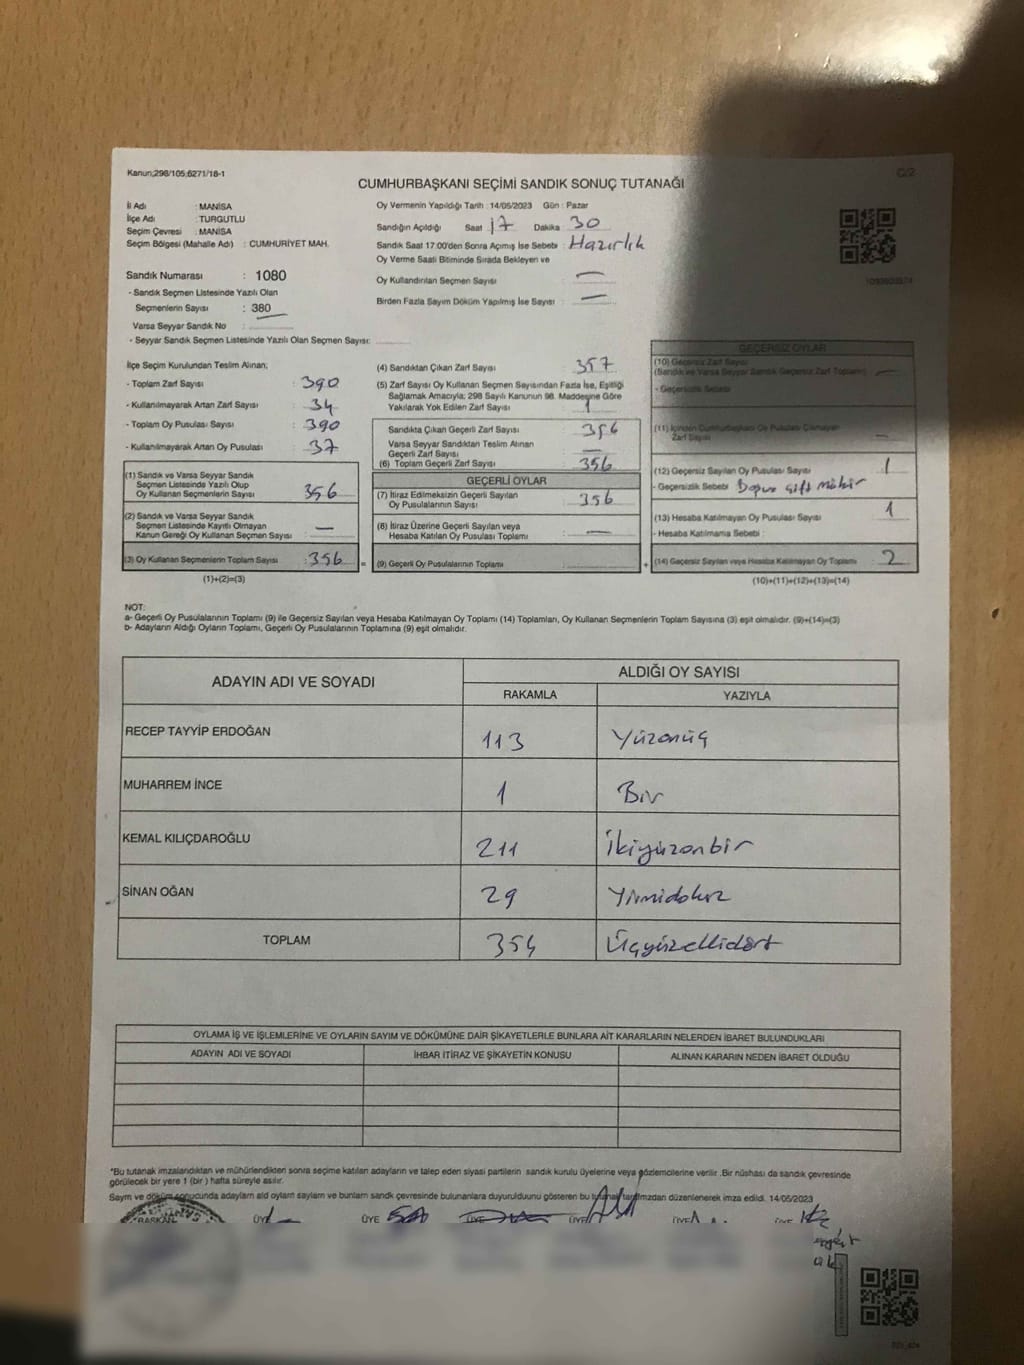 Kanun;298/105;6271/18-1
C/2
CUMHURBAŞKANI SEÇİMİ SANDIK SONUÇ TUTANAĞI
İl Adı : MANİSA
İlçe Adı : TURGUTLU
Seçim Çevresi : MANİSA
Seçim Bölgesi (Mahalle Adı) : CUMHURİYET MAH.
Sandık Numarası : 1080
- Sandık Seçmen Listesinde Yazılı Olan
Seçmenlerin Sayısı : 380
Varsa Seyyar Sandık No :
- Seyyar Sandık Seçmen Listesinde Yazılı Olan Seçmen Sayısı:
Oy Vermenin Yapıldığı Tarih : 14/05/2023 Gün : Pazar
Sandığın Açıldığı Saat 17 Dakika 30
Sandık Saat 17.00'den Sonra Açımış İse Sebebi : Hazırlık
Oy Verme Saati Bitiminde Sırada Bekleyen ve
Oy Kullandırılan Seçmen Sayısı : —
Birden Fazla Sayım Döküm Yapılmış İse Sayısı : —
İlçe Seçim Kurulundan Teslim Alınan;
- Toplam Zarf Sayısı : 390
- Kullanılmayarak Artan Zarf Sayısı : 34
- Toplam Oy Pusulası Sayısı : 390
- Kullanılmayarak Artan Oy Pusulası : 37
(1) Sandık ve Varsa Seyyar Sandık
Seçmen Listesinde Yazılı Olup
Oy Kullanan Seçmenlerin Sayısı : 356
(2) Sandık ve Varsa Seyyar Sandık
Seçmen Listesinde Kayıtlı Olmayan
Kanun Gereği Oy Kullanan Seçmen Sayısı : —
(3) Oy Kullanan Seçmenlerin Toplam Sayısı : 356
(1)+(2)=(3)
(4) Sandıktan Çıkan Zarf Sayısı : 357
(5) Zarf Sayısı Oy Kullanan Seçmen Sayısından Fazla İse, Eşitliği
Sağlamak Amacıyla; 298 Sayılı Kanunun 98. Maddesine Göre
Yakılarak Yok Edilen Zarf Sayısı : 1
Sandıkta Çıkan Geçerli Zarf Sayısı : 356
Varsa Seyyar Sandıktan Teslim Alınan
Geçerli Zarf Sayısı : —
(6) Toplam Geçerli Zarf Sayısı : 356
GEÇERLİ OYLAR
(7) İtiraz Edilmeksizin Geçerli Sayılan
Oy Pusulalarının Sayısı : 356
(8) İtiraz Üzerine Geçerli Sayılan veya
Hesaba Katılan Oy Pusulası Toplamı : —
= (9) Geçerli Oy Pusulalarının Toplamı :
GEÇERSİZ OYLAR
(10) Geçersiz Zarf Sayısı
(Sandık ve Varsa Seyyar Sandık Geçersiz Zarf Toplamı) : —
- Geçersizlik Sebebi :
(11) İçinden Cumhurbaşkanı Oy Pusulası Çıkmayan
Zarf Sayısı : —
(12) Geçersiz Sayılan Oy Pusulası Sayısı : 1
- Geçersizlik Sebebi : çift mühür
(13) Hesaba Katılmayan Oy Pusulası Sayısı : 1
- Hesaba Katılmama Sebebi :
+ (14) Geçersiz Sayılan veya Hesaba Katılmayan Oy Toplamı : 2
(10)+(11)+(12)+(13)=(14)
NOT:
a- Geçerli Oy Pusulalarının Toplamı (9) ile Geçersiz Sayılan veya Hesaba Katılmayan Oy Toplamı (14) Toplamları, Oy Kullanan Seçmenlerin Toplam Sayısına (3) eşit olmalıdır. (9)+(14)=(3)
b- Adayların Aldığı Oyların Toplamı, Geçerli Oy Pusulalarının Toplamına (9) eşit olmalıdır.
ADAYIN ADI VE SOYADI
ALDIĞI OY SAYISI
RAKAMLA YAZIYLA
RECEP TAYYİP ERDOĞAN 113 Yüzonüç
MUHARREM İNCE 1 Bir
KEMAL KILIÇDAROĞLU 211 İkiyüzonbir
SİNAN OĞAN 29 Yirmidokuz
TOPLAM 354 Üçyüzellidört
OYLAMA İŞ VE İŞLEMLERİNE VE OYLARIN SAYIM VE DÖKÜMÜNE DAİR ŞİKAYETLERLE BUNLARA AİT KARARLARIN NELERDEN İBARET BULUNDUKLARI
ADAYIN ADI VE SOYADI İHBAR İTİRAZ VE ŞİKAYETİN KONUSU ALINAN KARARIN NEDEN İBARET OLDUĞU
*Bu tutanak imzalandıktan ve mühürlendikten sonra seçime katılan adayların ve talep eden siyasi partilerin sandık kurulu üyelerine veya gözlemcilerine verilir .Bir nüshası da sandık çevresinde
görülecek bir yere 1 (bir ) hafta süreyle asılır.
Sayım ve döküm sonucunda adayların ald oyların sayların ve bunların sandk çevresinde bulunanlara duyurulduunu gösteren bu tutanak tarafımzdan düzenlenerek imza edildi. 14/05/2023
BAŞKAN ÜYE ÜYE ÜYE ÜYE ÜYE ÜYE